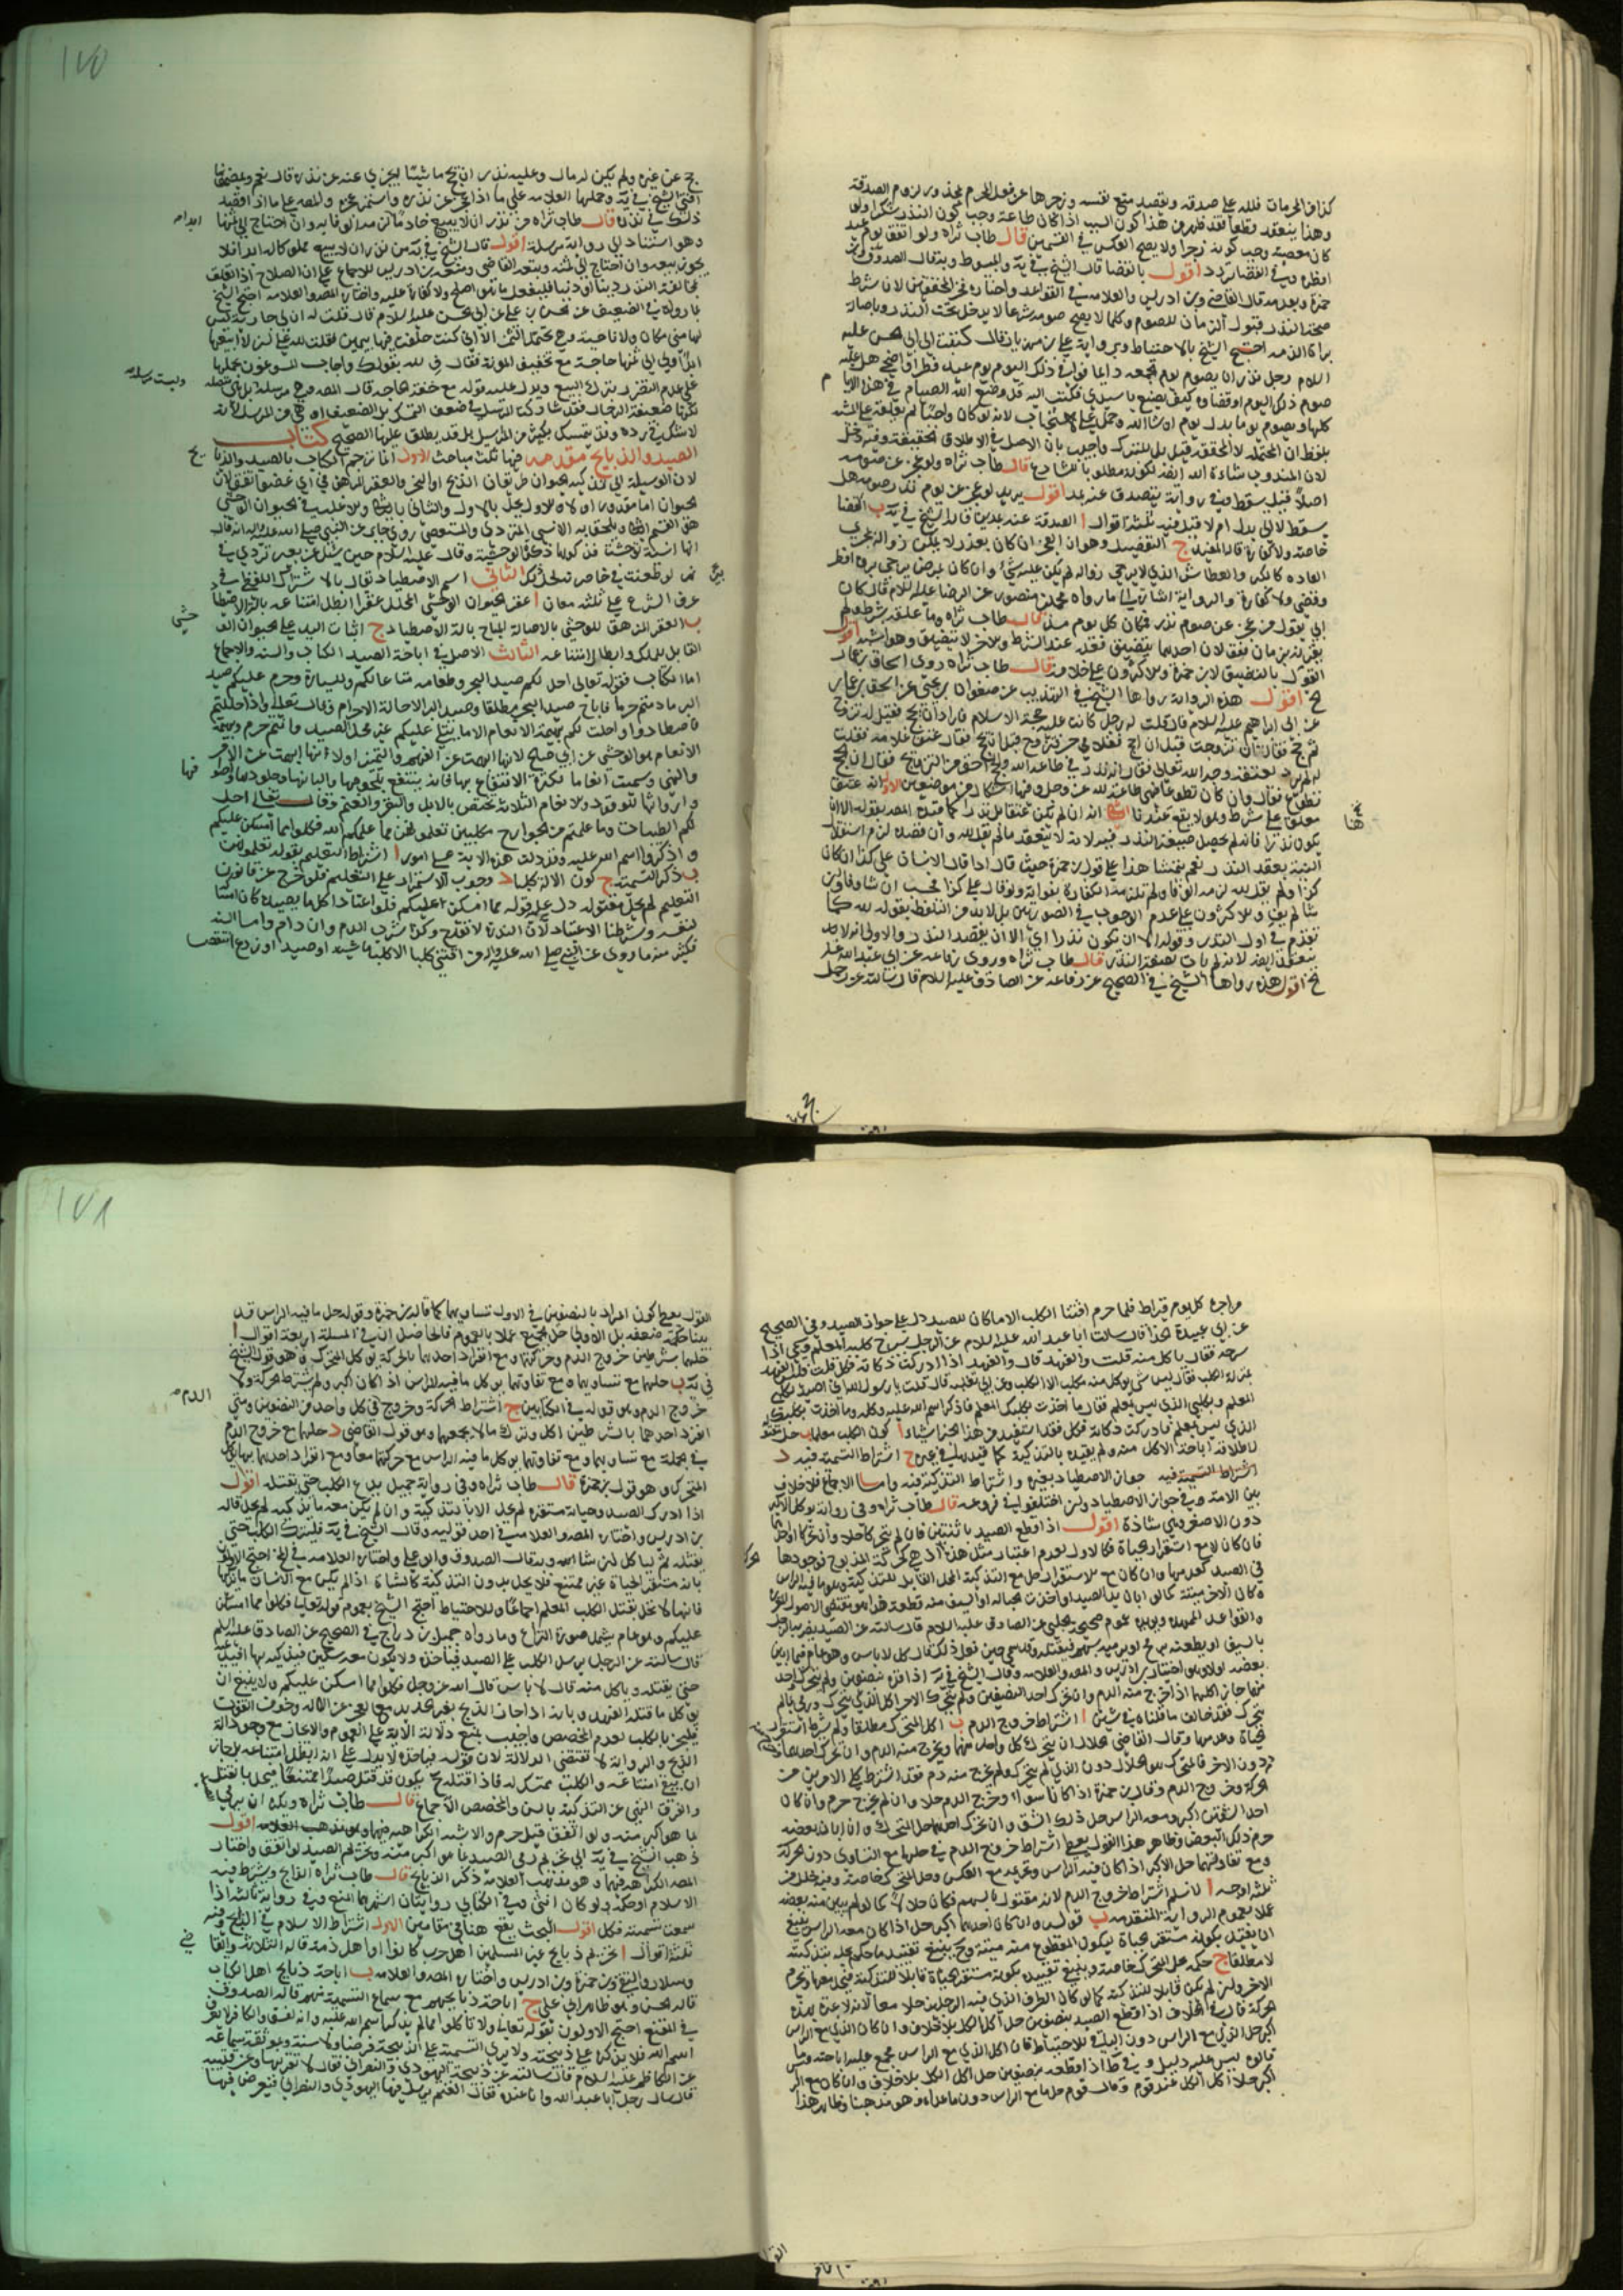 كذا من المحرمات فلله علي صدقة ويقصد منع نفسه وزجرها عن فعل المحرم بنذر لزوم الصدقة
وهذا ينعقد قطعا فقد ظهر من هذا كون السبب اذا كان طاعة وجب كون النذر شكرا ولو
كان معصية وجب كونه زجرا ولا يصح العكس في القسمين قال طاب ثراه ولو اتفق يوم عيد
افطره وفي القضا تردد اقول بالقضا قال الشيخ في يه والمبسوط وبه قال الصدوق وبن
حمزة وبعدمه قال القاضي وبن ادريس والعلامه في القواعد واختاره فخر المحققين لان شرط
صحة النذر قبول الزمان للصوم وكلما لا يصح صومه شرعا لا يدخل تحت النذر وباصالة
براة الذمه احتج الشيخ بالاحتياط وبرواية علي بن مهزيار قال كتبت الى ابي الحسن عليه
السلام رجل نذر ان يصوم يوم الجمعه دايما فوافق ذلك اليوم يوم عيد فطر او اضحى هل عليه
صوم ذلك اليوم او قضاوه وكيف يصنع يا سيدي فكتب اليه قد وضع الله الصيام في هذه الايا م
كلها ويصوم يوما بدل يوم ان شا الله وحمل على الاستحباب لانه لو كان واجبا لم يعلقه على المشية
بلفظ ان المحتمله لا المحققه قيل بل للتبرك واجيب بان الاصل في الاطلاق الحقيقة وفيه دخل
لان المندوب شاءه الله ايضا لكونه مطلوبا للشارع قال طاب ثراه ولو عجز عن صومه
اصلا قيل يسقط وفي رواية يتصدق عنه بمد اقول يريد لو عجز عن يوم نذر صومه هل
يسقط لا الى بدل ام لا قيل فيه ثلثة اقوال ا الصدقة عنه بمدين قاله الشيخ في يه ب القضا
خاصة ولا كفارة قاله المفيد ج التفصيل وهو ان العجز ان كان بعذر لا يمكن زواله بمجرى
العاده كالكبر والعطاش الذي لا يرجى زواله لم يكن عليه شيء وان كان لمرض يرجى بروه افطر
وقضى ولا كفارة والرواية اشارة الى ما رواه محمد بن منصور عن الرضا عليه السلام قال كان
ابي يقول من عجز عن صوم نذر فمكان كل يوم مد قال طاب ثراه وما علقه بشرط ولم
يقرنه بزمان فقولان احدهما يتضيق فعله عند الشرط والاخر لا يتضيق وهو اشبه اقول
القول بالتضيق لابن حمزة والاكثرون على خلافه قال طاب ثراه روى اسحاق بن عمار
الخ اقول هذه الرواية رواها الشيخ في التهذيب عن صفوان بن يحيى عن اسحق بن عمار
عن ابي ابراهيم عليه السلام قال قلت له رجل كانت عليه حجة الاسلام فاراد ان يحج فقيل له تزوج
ثم حج فقال ان تزوجت قبل ان احج فغلامي حر فتزوج قبل ان يحج فقال عتق غلامه فقلت
له لم يرد بعتقه وجه الله تعالى فقال انه نذر في طاعة الله والحج احق من التزويج فقلت ان الحج
تطوع فقال وان كان تطوعا فهي طاعة لله عز وجل وفيها اشكال من موضعين الاول انه عتق
معلق على شرط وهو لا يقع عندنا الثاني انه ان لم يكن عتقا بل نذرا كما قيده المصنف بقوله الا ان
يكون نذرا فانه لم يحصل صيغة النذر فيه لانه لا ينعقد ما لم يقل لله وان قصد لزم استقلال
النية بعقد النذر نعم يتمشا هذا على قول بن حمزة حيث قال اذا قال الانسان علي كذا ان كان
كذا ولم يقل لله لزمه الوفا ولم تلزمه الكفارة بفواته ولو قال علي كذا فحسب ان شا وفا وان
شا لم يف والاكثرون على عدم الوجوب في الصورتين بل لا بد من التلفظ بقوله لله كما
تقدم في اول النذر وقوله الا ان تكون نذرا اي الا ان يقصد النذر والاولى انه لا
ينعقد ايضا لانه لم يات بصيغة النذر قال طاب ثراه وروى رفاعه عن ابي عبد الله عليه السلام
الخ اقول هذه رواها الشيخ في الصحيح عن رفاعه عن الصادق عليه السلام قال سالته عن رجل
١٧٥
حج عن غيره ولم يكن له مال وعليه نذر ان يحج ماشيا ايجزي عنه عن نذره قال نعم وبمضمونها
افتى الشيخ في يه وحملها العلامه على ما اذا عجز عن نذره واستمر عجزه والمصنف على ما اذا قصد
ذلك في نذره قال طاب ثراه من نذر ان لا يبيع خادما لزمه الوفا به وان احتاج الى ثمنها
وهو استنادا الى رواية مرسلة اقول قال الشيخ في يه من نذر ان لا يبيع مملوكا له ابدا فلا
يجوز بيعه وان احتاج الى ثمنه وتبعه القاضي ومنعه بن ادريس للاجماع على ان الصلاح اذا تعلق
بمخالفة النذر دينا او دنيا فليفعل ما هو اصلح ولا كفارة عليه واختاره المصنف والعلامه احتج الشيخ
بما رواه في الضعيف عن الحسن بن علي عن ابي الحسن عليه السلام قال قلت له ان لي جارية ليس
لها مني مكان ولا ناحية وهي تحتمل الثمن الا اني كنت حلفت فيها بيمين فقلت لله علي ان لا ابيعها
ابدا ولي الى ثمنها حاجة مع تخفيف المونة فقال فِ لله بقولك واجاب المسوغون بحملها
على عدم التضرر بترك البيع ويدل عليه قوله مع خفة الحاجه قال المصنف وهي مرسلة
لكونها ضعيفة الرجال فقد شاركت المرسل في ضعف التمسك بل الضعيف اوهى من المرسل لانه
لا شك في رده وقد يتمسك بكثير من المراسيل بل قد يطلق عليها الصحيح كتاب
الصيد والذبايح مقدمه فيها ثلث مباحث الاول انما ترجم الكتاب بالصيد والذبا يح
لان الوسيلة الى تذكية الحيوان طريقان الذبح او النحر والعقر المزهق في اي عضو اتفق لان
الحيوان اما مقدور او لا فالاول يحل بالاول والثاني بالثاني والاغلب في الحيوان الوحشي
هو القسم الثاني ويلحق به الانسي المتردي والمستعصي روى جابر عن النبي صلى الله عليه واله انه قال
ايما انسية توحشت فذكوها ذكاة الوحشية وقال عليه السلام حين سئل عن بعير تردى في
بئر لو طعنت في خاصرته لحل لك الثاني اسم الاصطياد يقال بالاشتراك اللفظي في
عرف الشرع على ثلثه معان ا عقر الحيوان الوحشي المحلل عقرا ابطل امتناعه بالة الاصطياد
ب العقر المزهق للوحشي بالاصالة المباح بالة الاصطياد ج اثبات اليد على الحيوان الوحشي
القابل للملك وابطال امتناعه الثالث الاصل في اباحة الصيد الكتاب والسنه والاجماع
اما الكتاب فقوله تعالى احل لكم صيد البحر وطعامه متاعا لكم وللسيارة وحرم عليكم صيد
البر ما دمتم حرما فاباح صيد البحر مطلقا وصيد البر الا حالة الاحرام وقال تعالى واذا حللتم
فاصطادوا واحلت لكم بهيمة الانعام الا ما يتلى عليكم غير محلي الصيد وانتم حرم وبهيمة
الانعام هو الوحشي عن ابي صالح لانها ابهمت عن الفهم والتمييز اولا انها ابهمت عن الامر
والنهي وسميت انعاما لكثرة الانتفاع بها فانه ينتفع بلحومها والبانها وجلودها واصوافها
واروائها للوقود والانعام الثلاثة تختص بالابل والبقر والغنم وقال تعالى احل
لكم الطيبات وما علمتم من الجوارح مكلبين تعلمونهن مما علمكم الله فكلوا مما امسكن عليكم
واذكروا اسم الله عليه وقد دلت هذه الاية على امور ا اشتراط التعليم بقوله تعلمونهن
ب ذكر التسمية ج كون الالة كلبا د وجوب الاستمرار على التعليم فلو خرج عن قانون
التعليم لم يحل مقتوله دل على قوله مما امسكن عليكم فلو اعتاد اكل ما يصيده كان امساكا
لنفسه وشرطنا الاعتياد لان الندرة لا تقدح وكذا شرب الدم وان دام واما السنه
فكثير منه ما روي عن النبي صلى الله عليه واله من اقتنى كلبا الا كلب ماشية او صيد او زرع انتقص
من اجره كل يوم قيراط فلما حرم اقتنا الكلب الا ما كان للصيد دل على جواز الصيد وفي الصحيح
عن ابي عبيدة الحذا قال سالت ابا عبد الله عليه السلام عن الرجل يسرح كلبه المعلم ويسمي اذا
سرحه فقال ياكل منه قلت والفهد قال والفهد اذا ادركت ذكاته فكل قلت اليس الفهد
بمنزلة الكلب فقال ليس شي يوكل منه مكلب الا الكلب وعن ابي ثعلبه قال قلت يا رسول الله اني اصيد بكلبي
المعلم وبكلبي الذي ليس بمعلم فقال ما اخذت بكلبك المعلم فاذكر اسم الله عليه وكله وما اخذت بكلبك
الذي ليس بمعلم فادركت ذكاته فكل فقد استفيد من هذا الخبر اشياء ا كون الكلب معلما ب حل مقتوله
لاطلاقه اباحة الاكل منه ولم يقيده بالتذكية كما قيد بذلك في غيره ج اشتراط التسمية فيه د
اشتراط التسمية فيه جواز الاصطياد بغيره واشتراط التذكية فيه واما الاجماع فلا خلاف
بين الامة في جواز الاصطياد وان اختلفوا في فروعه قال طاب ثراه وفي رواية يوكل الاكبر
دون الاصغر وهي شاذة اقول اذا قطع الصيد باثنين فان لم يتحركا حلا وان تحركا او احدهما
فان كان لا مع استقرار الحياة فكالاول لعدم اعتبار مثل هذا اذ هي كحركة المذبوح فوجودها
في الصيد كعدمها وان كان مع الاستقرار حل مع التذكية المحل القابل للتذكية وهو ما فيه الراس
وكان الاخر ميتة كما لو ابان يد الصيد او اخذت الحبالة او السيف منه قطعة هذا هو مقتضى الاصول المقررة
والقواعد الممهده ويويده عموم صحيحة الحلبي عن الصادق عليه السلام قال سالته عن الصيد يضربه الرجل
بالسيف او يطعنه برمح او يرميه بسهم فيقتله وقد سمى حين فعل ذلك فقال كل لا باس وهو عام فيما ابين
بعضه اولا وهو اختيار بن ادريس والمصنف والعلامه وقال الشيخ في يه اذا قده نصفين ولم يتحرك واحد
منهما جاز اكلهما اذا خرج منه الدم وان تحرك احد النصفين ولم يتحرك الاخر اكل الذي يتحرك ورمى ما لم
يتحرك فقد خالف ما قلناه في شيئين ا اشتراط خروج الدم ب اكل المتحرك مطلقا ولم يشرط استقرار
الحياة وعدمها وقال القاضي يحلان ان يتحرك كل واحد منهما ويخرج منه الدم وان تحرك احدهما
دون الاخر فالمتحرك هو الحلال دون الذي لم يتحرك ولم يخرج منه دم فقد اشترط كلا الامرين من
الحركة وخروج الدم وقال بن حمزة اذا كانا سواء وخرج الدم حلا وان لم يخرج حرم وان كان
احد الشقين اكبر ومعه الراس حل ذلك الشق وان تحرك احدهما حل المتحرك وان ابان بعضه
حرم ذلك البعض وظاهر هذا القول يعطي اشتراط خروج الدم في حلهما مع التساوي دون الحركة
ومع تفاوتهما حل الاكبر اذا كان فيه الراس وتحريمه مع العكس وحل المتحرك خاصة وفيه خلل من
ثلثة اوجه ا لا نسلم اشتراط خروج الدم لانه مقتول بالسهم فكان حلالا كما لو لم يبين منه بعضه
عملا بعموم الرواية المتقدمه ب قوله وان كان احدهما اكبر حل اذا كان معه الراس ينبغي
ان يقيد بكونه مستقر الحياة ليكون المقطوع منه ميتة وح ينبغي تقييد ما حكم بحله بتذكيته
لا مطلقا ج حكمه بحل المتحرك خاصة وينبغي تقييده بكونه مستقر الحياة قابلا للتذكية فيحل معها ويحرم
الاخر وان لم يكن قابلا للتذكية كما لو كان الطرف الذي فيه الرجلين حلا معا لانه لا عبرة بهذه
الحركة قال في الخلاف اذا قطع الصيد بنصفين حل اكل الكل بلا خلاف وان كان الذي مع الراس
اكبر حل الذي مع الراس دون الباقي للاحتياط فان اكل الذي مع الراس مجمع عليه اباحته وما
قالوه ليس عليه دليل وفي ط اذا قطعه بنصفين حل اكل الكل بلا خلاف وان كان مع الراس
اكبر حلا اكل الكل عند قوم وقال قوم حل ما مع الراس دون ما عداه وهو مذهبنا وظاهر هذا
١٧٦
القول يعطي كون المراد بالنصفين في الاول تساويهما كما قاله بن حمزة وقوله حل ما فيه الراس قد
بينا حكمه وضعفه بل الاولى حل الجميع عملا بالعموم فالحاصل ان في المسئلة اربعة اقوال ا
حلهما بشرطين خروج الدم وحركتهما ومع انفراد احدهما بالحركة يوكل المتحرك وهو قول الشيخ
في يه ب حلهما مع تساويهما ومع تفاوتهما يوكل ما فيه الراس اذا كان اكبر ولم يشترط الحركة ولا
خروج الدم وهو قوله في الكتابين ج اشتراط الحركة وخروج الدم في كل واحد من النصفين ومتى
انفرد احدهما بالشرطين اكل وترك ما لا يجمعهما وهو قول القاضي د حلهما مع خروج الدم
في الجملة مع تساويهما ومع تفاوتهما يوكل ما فيه الراس مع حركتهما معا ومع انفراد احدهما بها يوكل
المتحرك وهو قول بن حمزة قال طاب ثراه وفي رواية جميل يدع الكلب حتى يقتله اقول
اذا ادرك الصيد وحياته مستقره لم يحل الا بالتذكية وان لم يكن معه ما يذكيه لم يحل قاله
بن ادريس واختاره المصنف والعلامة في احد قوليه وقال الشيخ في يه فليترك الكلب حتى
يقتله ثم لياكل ان شا الله وبه قال الصدوق وابو علي واختاره العلامه في المختلف احتج الاولون
بانه مستقر الحياة غير ممتنع فلا يحل بدون التذكية كالشاة اذا لم يكن مع الانسان ما يذكيها
فانها لا تحل بقتل الكلب المعلم اجماعا وللاحتياط احتج الشيخ بعموم قوله تعالى فكلوا مما امسكن
عليكم وهو عام يشمل صورة النزاع وما رواه جميل بن دراج في الصحيح عن الصادق عليه السلم
قال سالته عن الرجل يرسل الكلب على الصيد فياخذه ولا يكون معه سكين فيذكيه بها افيدعه
حتى يقتله وياكل منه قال لا باس قال الله عز وجل فكلوا مما امسكن عليكم ولا ينبغي ان
يوكل ما قتله الفهد وبانه اذا جاز الذبح بغير الحديد مع العجز عن الالة وخوف الفوت
فليجز بالكلب لعدم المخصص واجيب بمنع دلالة الاية على العموم والا لجاز مع وجود الة
الذبح والرواية لا تقتضي الدلالة لان قوله فياخذه لا يدل على انه ابطل امتناعه بل جاز
ان يبقى امتناعه والكلب ممسك له فاذا قتله ح يكون قد قتل صيدا ممتنعا فيحل بالقتل
والفرق النهي عن التذكية بالسن والمخصص الاجماع قال طاب ثراه ويكره ان يرمي
بما هو اكبر منه ولو اتفق قيل حرم والاشبه الكراهية فيهما وهو مذهب العلامه اقول
ذهب الشيخ في يه الى تحريم رمي الصيد بما هو اكبر منه وتحريم الصيد لو اتفق واختار
المصنف الكراهة فيهما وهو مذهب العلامة ذكر الذبايح قال طاب ثراه الذابح ويشترط فيه
الاسلام او حكمه ولو كان انثى وفي الكتابي روايتان اشهرهما المنع وفي رواية ثالثة اذا
سمعت تسميته فكل اقول البحث يقع هنا في مقامين الاول اشتراط الاسلام في الذابح وفيه
ثلثة اقوال ا تحريم ذبايح غير المسلمين اهل حرب كانوا او اهل ذمة قاله الثلاثة واتباعهم
وسلار والتقي وبن حمزة وبن ادريس واختاره المصنف والعلامه ب اباحة ذبايح اهل الكتاب
قاله الحسن وهو ظاهر ابي علي ج اباحة ذبايحهم مع سماع التسمية منهم قاله الصدوق
في المقنع احتج الاولون بقوله تعالى ولا تاكلوا مما لم يذكر اسم الله عليه وانه لفسق والكافر لا يعرف
اسم الله فلا يذكره على ذبيحته ولا يرى التسمية على الذبيحة فرضا ولا سنة وبموثقة سماعه
عن الكاظم عليه السلام قال سالته عن ذبيحة اليهودي والنصراني فقال لا تقربها وعن قتيبه
قال سال رجل ابا عبد الله وانا عنده فقال الغنم يرسل فيها اليهودي والنصراني فتعرض فيها